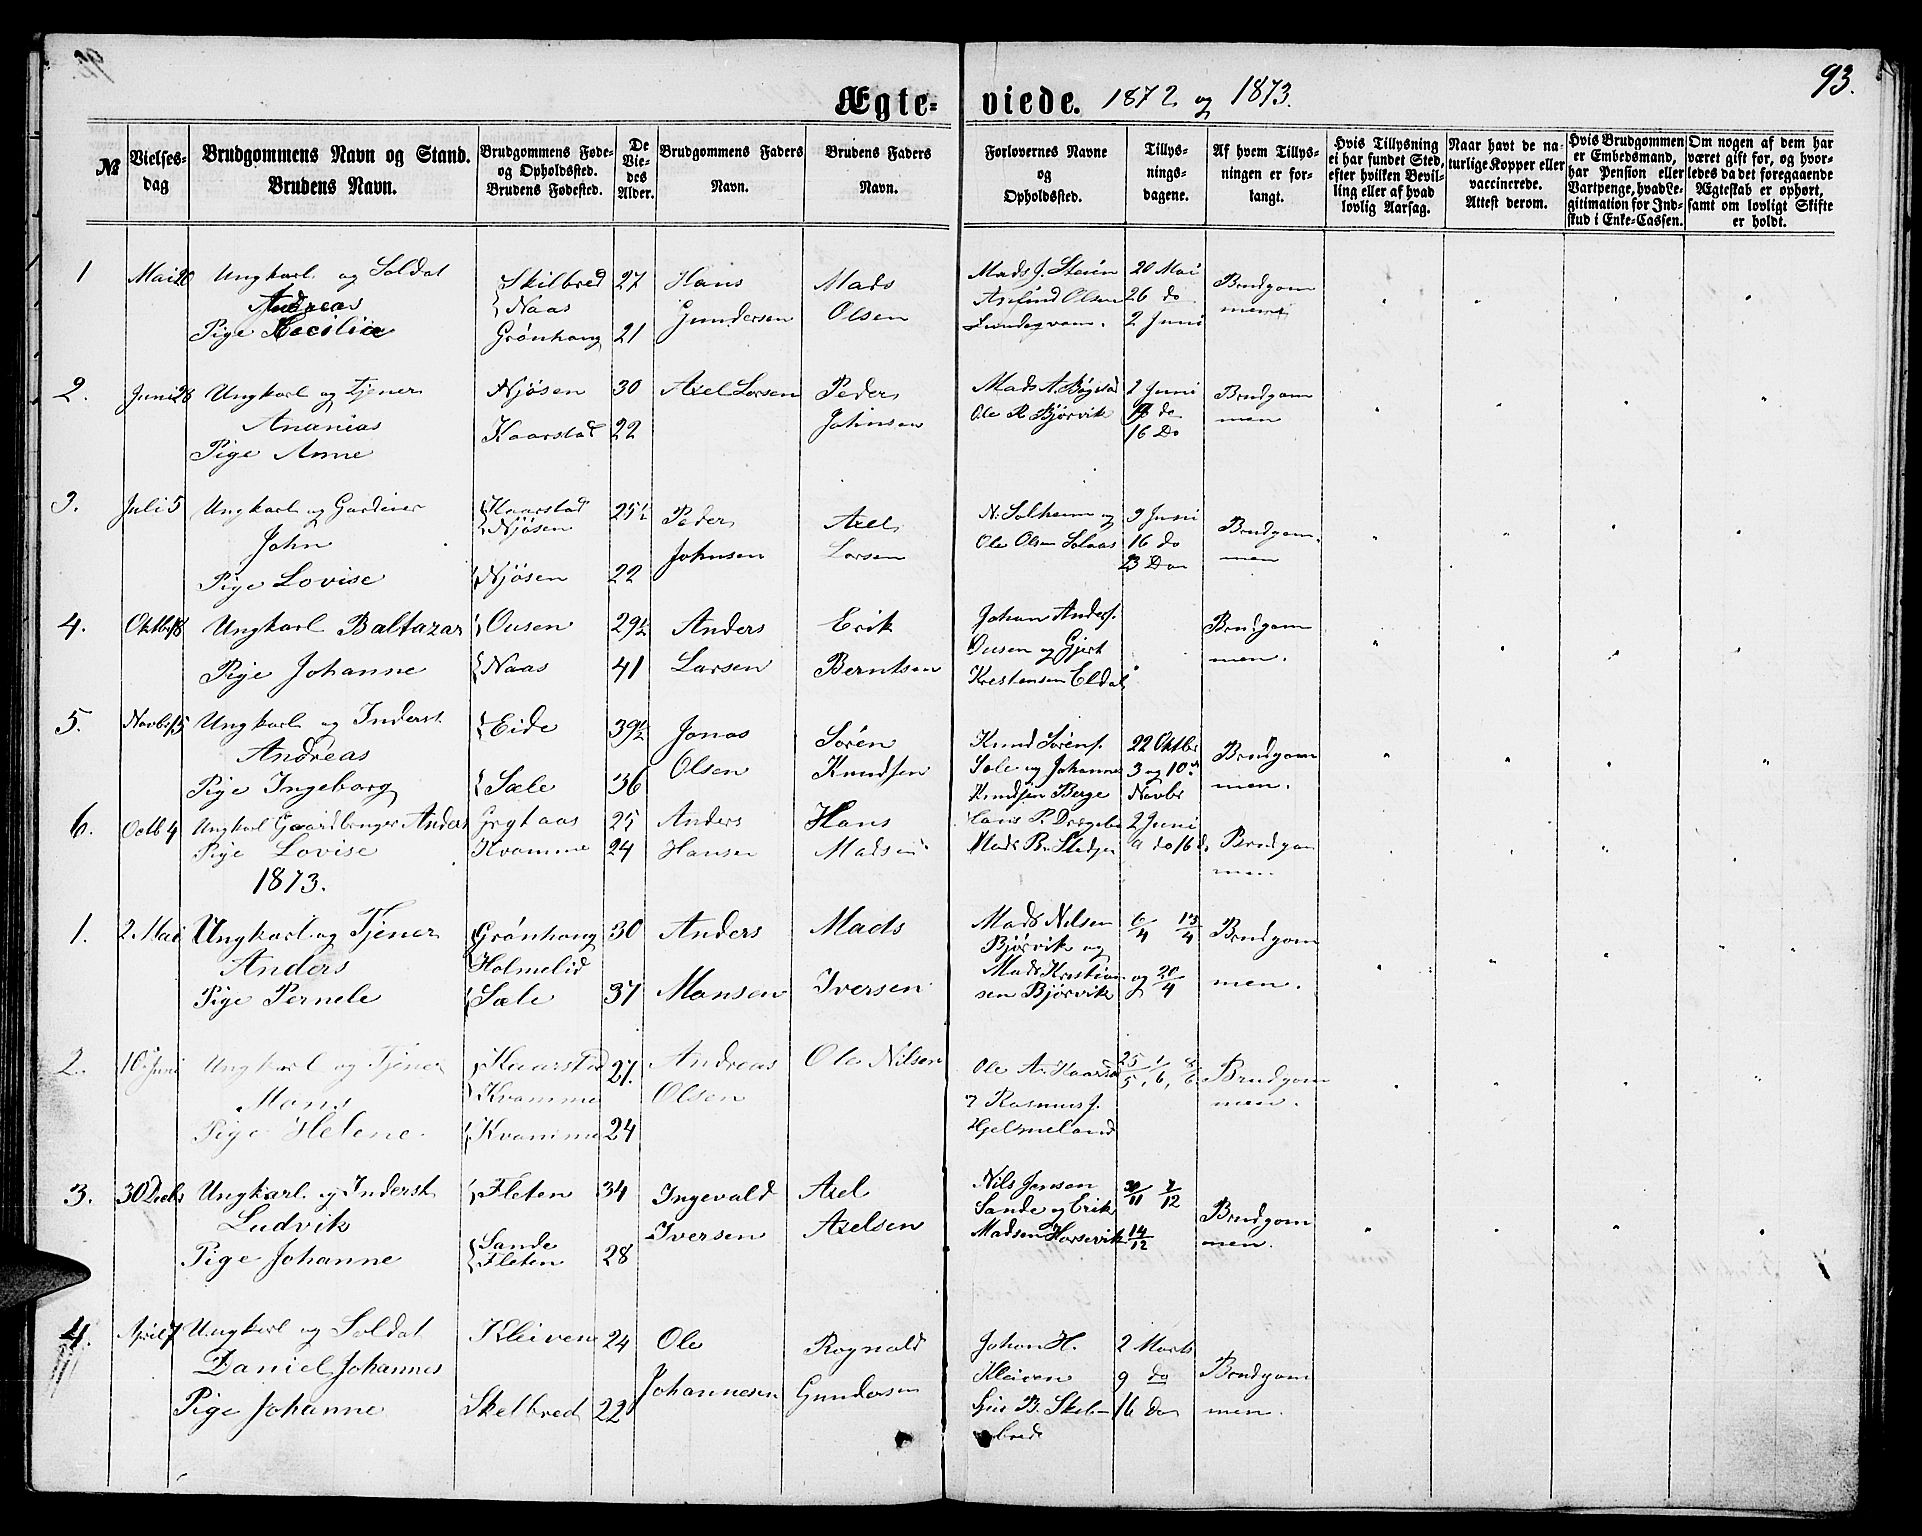 93.
Ægte- viede. 1872 og 1873.
№
Vielses-dag
Brudgommens Navn og Stand. Brudens Navn.
Brudgommens Føde- og Opholdssted. Brudens Fødested.
De Vie-des Alder.
Brudgommens Faders Navn.
Brudens Faders Navn.
Forlovernes Navne og Opholdssted.
Tillys-nings-dagene.
Af hvem Tillys-ningen er for-langt.
Hvis Tillysning ei har fundet Sted, efter hvilken Bevil-ling eller af hvad lovlig Aarsag.
Naar havt de na-turlige Kopper eller vaccinerede. Attest derom.
Hvis Brudgommen er Embedsmand, har Pension eller Vartpenge, hvad Le-gitimation for Ind-skud i Enke-Cassen.
Om nogen af dem har været gift før, og hvor-ledes da det foregaaende Ægteskab er ophørt, samt om lovligt Skifte er holdt.
1 Mai 20 Ungkarl og Soldat Skilbred 27 Hans Mads Mads J. 20 Mai Brudgom
Andreas Naas Gundersen Olsen Olsen 26 do men
Pige Cecilie Grönhaug 21 2 Juni
2. Juni 28 Ungkarl og Tjener Njösen 30 Axel Larsen Peder Mads A. 2 Juni Brudgom
Ananias Kaarstad 22 Johnsen Ole R. Bjørvik 9 do men
Pige Anne 16 Do
3. Juli 5 Ungkarl og Gardiner Kaarstad 25½ Peder Axel N. Solheim og 9 Juni Brudgom
John Njösen Johnsen Larsen Ole Olsen Solaas 16 do men
Pige Lovise Njösen 22 23 Do
4. Oktbr 18 Ungkarl Baltazar Ousen 29½ Anders Erik Johan Anders. Brudgom
Ousen og Gjert men.
Pige Johanne Naas 41 Larsen Berntsen Krestensen Eldal
5. Novbr 15 Ungkarl og Inderst Eide 39½ Jonas Sören Knud Sörens. 22 Oktbr Brudgom
Andreas Olsen Knudsen Sæle og Johannes 3 og 10de men.
Pige Ingeborg Sæle 36 Knudsen Berge Novbr
6. Octb 4 Ungkarl Gaardbruger Anders Grytaas 25 Anders Hans Hans P. 2 Juni Brudgom
Pige Lovise Kvamme 24 Hansen Madsen Mads B. 9 do 16 d. men.
1873.
1. 2. Mai Ungkarl og Tjener Grönhaug 30 Anders Mads Mads Nilsen 6/4 13/4 Brudgom
Anders Holmelid Bjørvik og
Pige Pernele Sæle 37 Monsen Iversen Mads Kristian- og 20/4 men.
sen Bjørvik
2. 10. Juni Ungkarl og Tjener Kaarstad 27. Andreas Ole Nilsen Ole A. Kaarstad 25/5, 1/6, 8/6 Brudgom
Mons Kvamme Olsen Rasmus J. men.
Pige Helene Kvamme 24 Hjelmeland
3. 30 Decbr Ungkarl og Inderst Fleten 34 Ingevald Axel Nils Jonson 30/11 7/12 Brudgom
Ludvik Sande Iversen Axelsen Sande og Erik men.
Pige Johanne Fleten 28 Madsen Horsevik 14/12
4. April 7 Ungkarl og Soldat Kleiven 24 Ole Rognald Johan H. 2 Marts Brudgom
Daniel Johannes Johannesen Gundersen Kleiven 9 do men.
Pige Johanne Skelbred 22 B. Skel- 16 do
bred